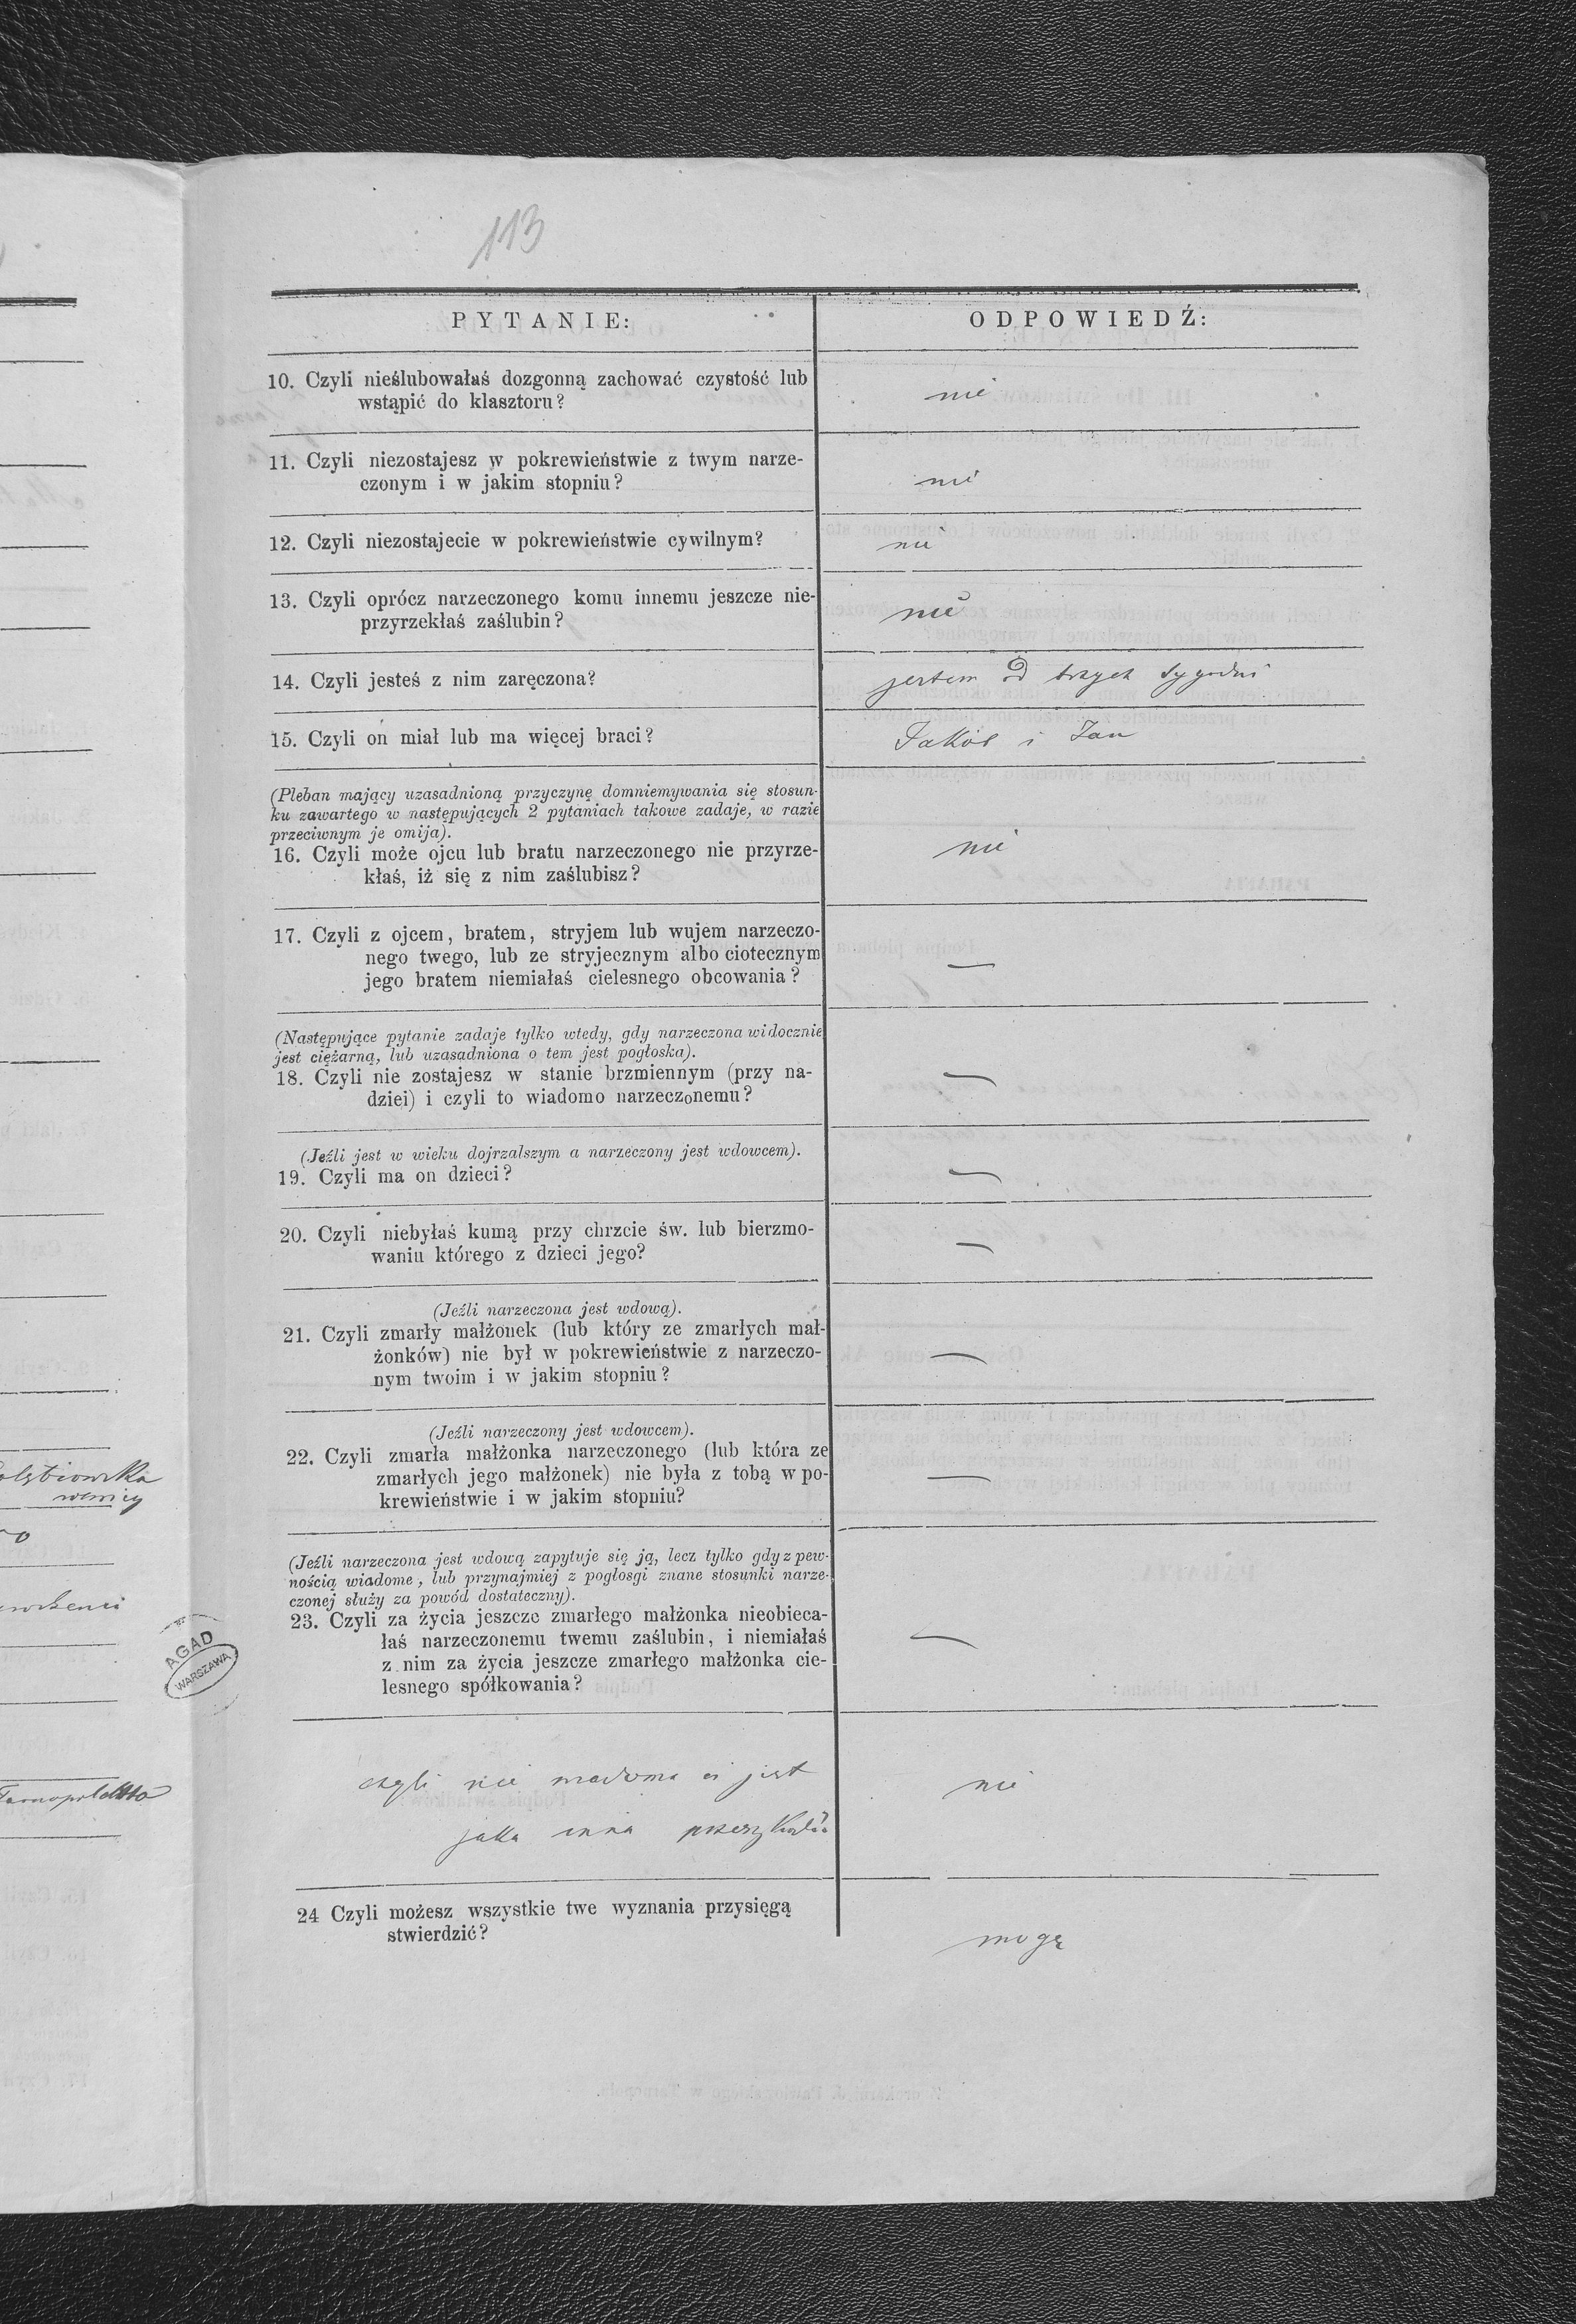 113
PYTANIE:
ODPOWIEDŹ:
10. Czyli nieślubowałaś dozgonną zachować czystość lub
wstąpić do klasztoru?
nie
11. Czyli niezostajesz w pokrewieństwie z twym narze-
czonym i w jakim stopniu?
nie
12. Czyli niezostajecie w pokrewieństwie cywilnym?
nie
13. Czyli oprócz narzeczonego komu innemu jeszcze nie-
przyrzekłaś zaślubin?
nie
14. Czyli jesteś z nim zaręczona?
jestem od trzech tygodni
15. Czyli on miał lub ma więcej braci?
Jakób i Jan
(Pleban mający uzasadnioną przyczynę domniemywania się stosun-
ku zawartego w następujących 2 pytaniach takowe zadaje, w razie
przeciwnym je omija).
16. Czyli może ojcu lub bratu narzeczonego nie przyrze-
kłaś, iż się z nim zaślubisz?
nie
17. Czyli z ojcem, bratem, stryjem lub wujem narzeczo-
nego twego, lub ze stryjecznym albo ciotecznym
jego bratem niemiałaś cielesnego obcowania?
—
(Następujące pytanie zadaje tylko wtedy, gdy narzeczona widocznie
jest ciężarną, lub uzasadniona o tem jest pogłoska).
18. Czyli nie zostajesz w stanie brzmiennym (przy na-
dziei) i czyli to wiadomo narzeczonemu?
—
(Jeźli jest w wieku dojrzalszym a narzeczony jest wdowcem).
19. Czyli ma on dzieci?
—
20. Czyli niebyłaś kumą przy chrzcie św. lub bierzmo-
waniu którego z dzieci jego?
—
(Jeźli narzeczona jest wdową).
21. Czyli zmarły małżonek (lub który ze zmarłych mał-
żonków) nie był w pokrewieństwie z narzeczo-
nym twoim i w jakim stopniu?
—
(Jeźli narzeczony jest wdowcem).
22. Czyli zmarła małżonka narzeczonego (lub która ze
zmarłych jego małżonek) nie była z tobą w po-
krewieństwie i w jakim stopniu?
—
(Jeźli narzeczona jest wdową zapytuje się ją, lecz tylko gdy z pew-
nością wiadome, lub przynajmiej z pogłosgi znane stosunki narze-
czonej służy za powód dostateczny).
23. Czyli za życia jeszcze zmarłego małżonka nieobieca-
łaś narzeczonemu twemu zaślubin, i niemiałaś
z nim za życia jeszcze zmarłego małżonka cie-
lesnego spółkowania?
—
czyli nie wiadoma ci jest
jaka inna przeszkoda
nie
24 Czyli możesz wszystkie twe wyznania przysięgą
stwierdzić?
mogę
AGAD
WARSZAWA